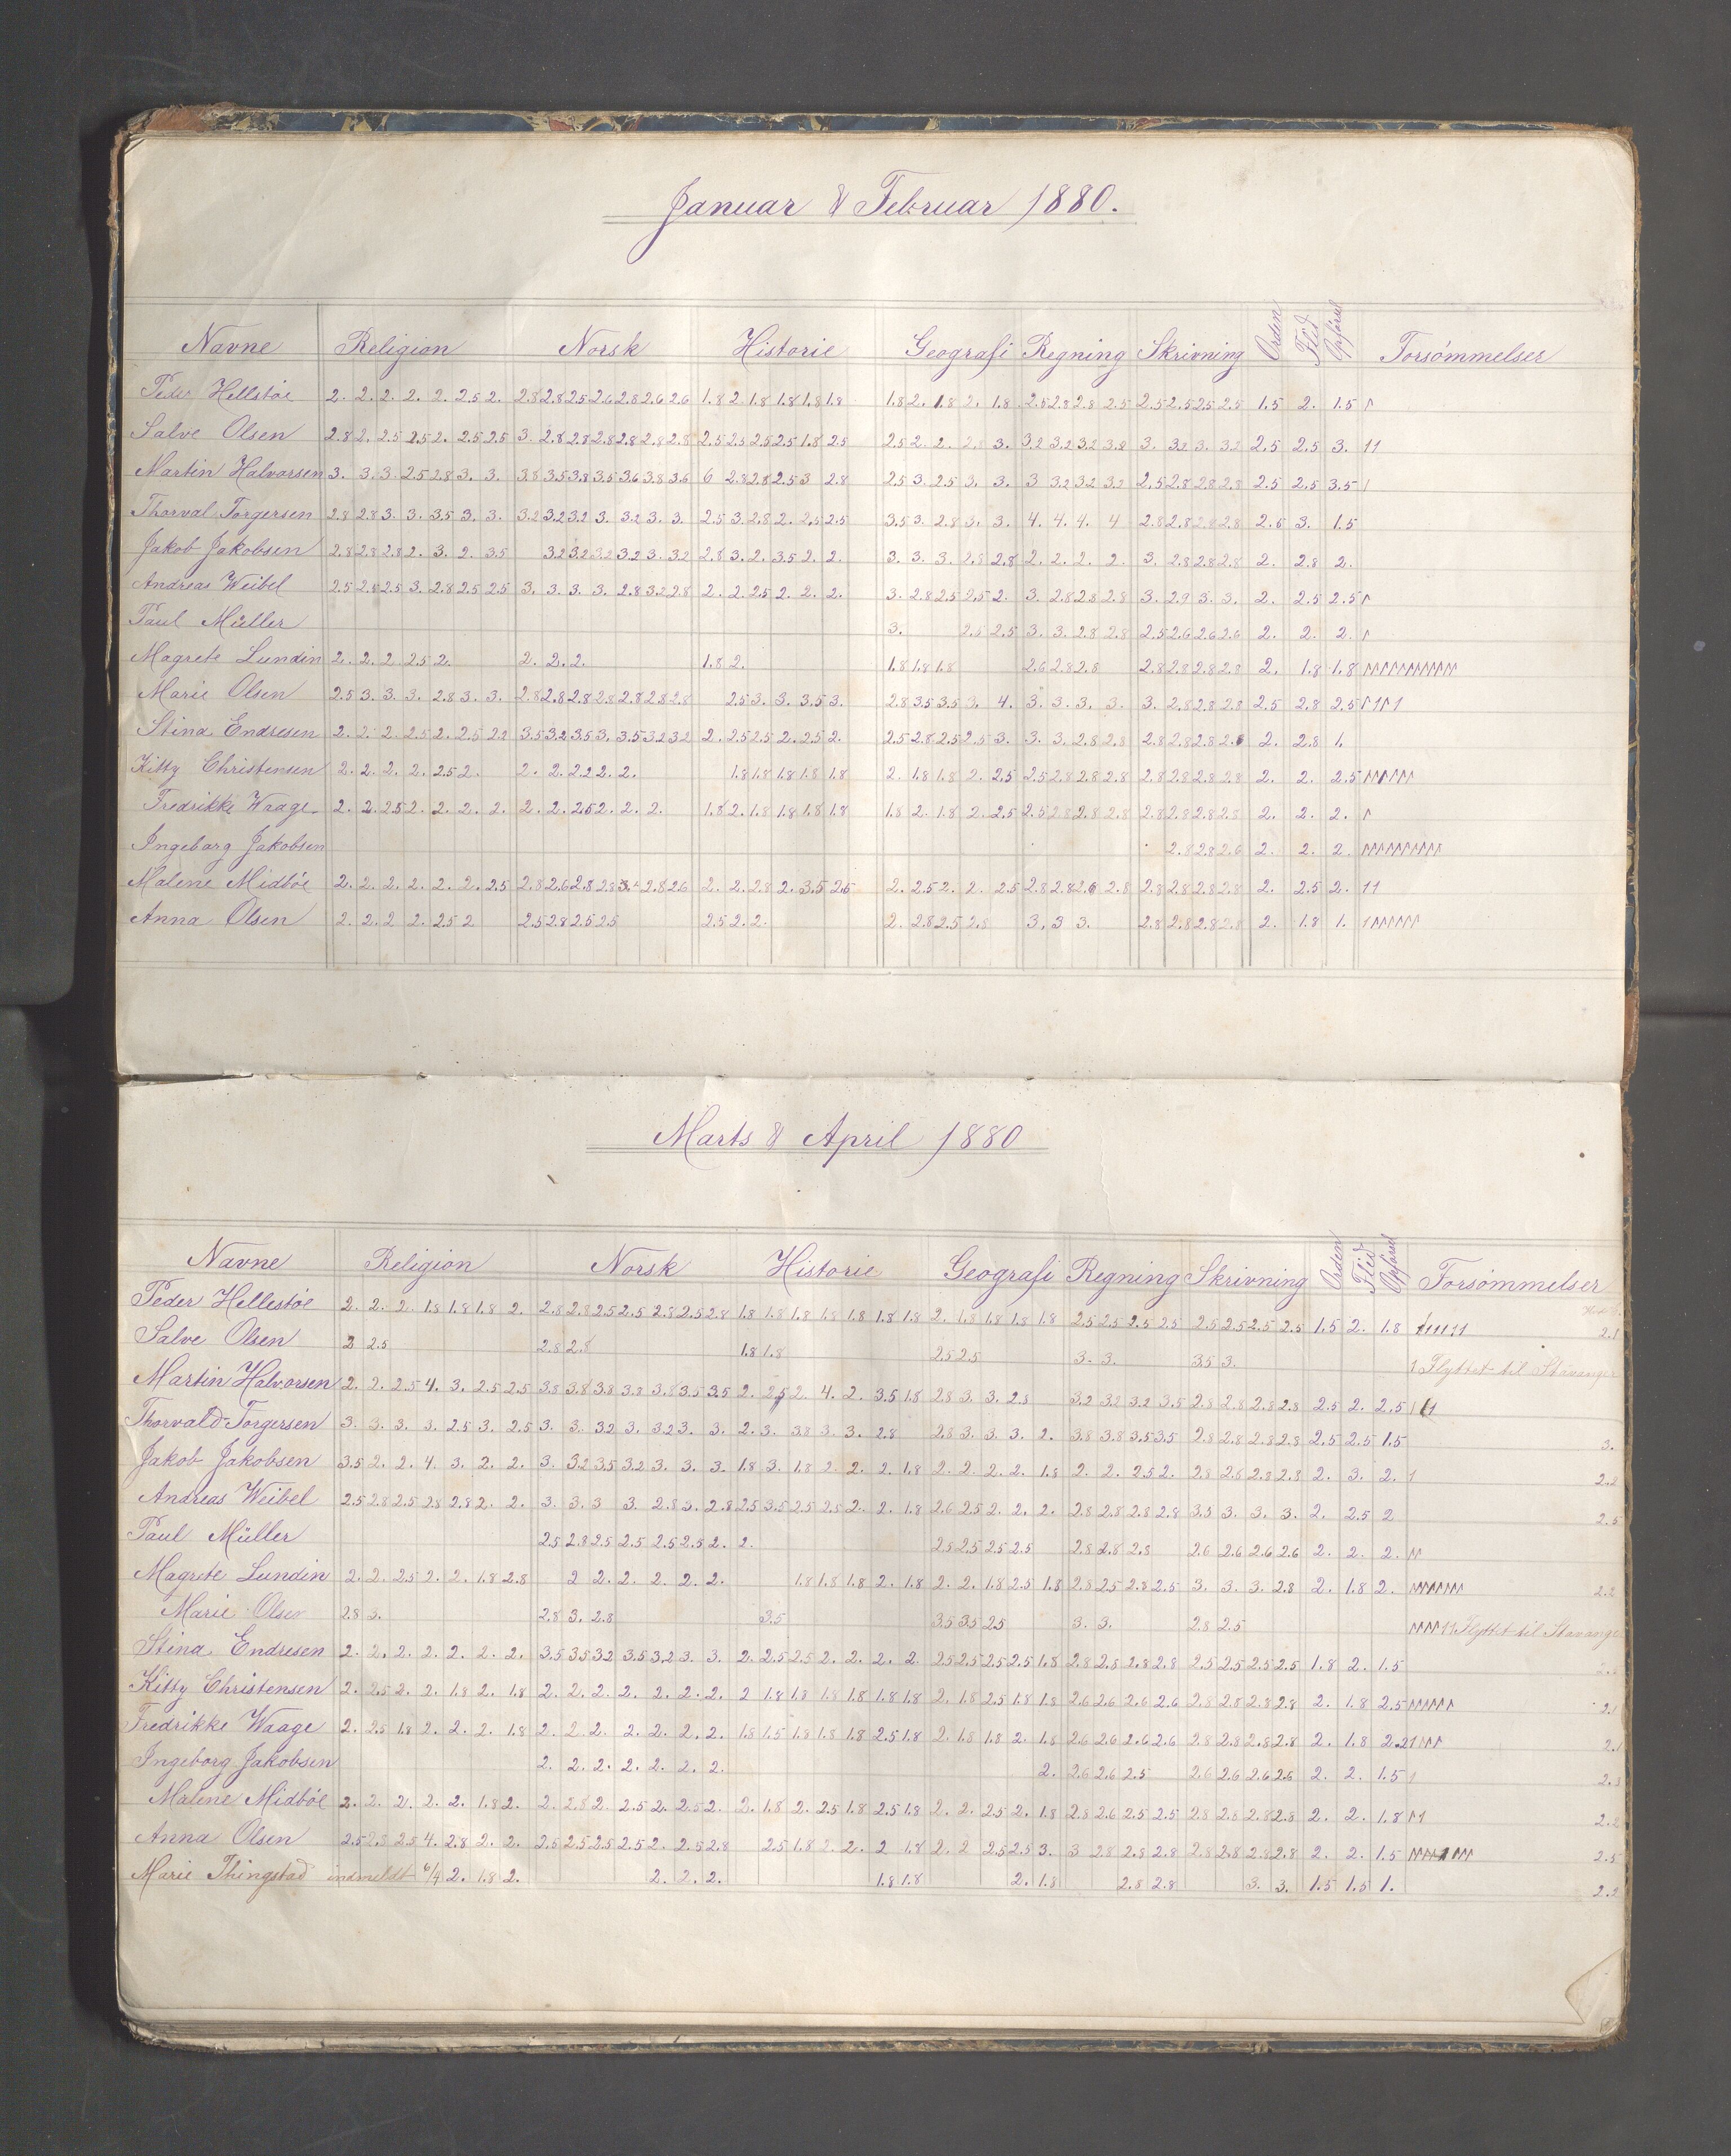 Januar & Februar 1880.
Navne Religion Norsk Historie Geografi Regning Skrivning Orden Flid Opförsel Forsömmelser
Peder Hellstöe 2. 2. 2. 2. 2. 2.5 2. 2.8 2.8 2.5 2.6 2.8 2.6 2.6 1.8 2 1.8 1.8 1.8 1.8 1.8 2. 1.8 2. 1.8 2.5 2.8 2.8 2.5 2.5 2.5 2.5 2.5 1.5 2. 1.5
Salve Olsen 2.8 2. 2.5 2.5 2. 2.5 2.5 3. 2.8 2.8 2.8 2.8 2.8 2.8 2.5 2.5 2.5 2.5 1.8 2.5 2.5 2. 2. 2.8 3. 3.2 3.2 3.2 3.2 3. 3.2 3. 3.2 2.5 2.5 3. 11
Martin Halvorsen 3. 3. 3. 2.5 2.8 3. 3. 3.8 3.5 3.8 3.5 3.6 3.8 3.6 6 2.8 2.8 2.5 3 2.8 2.5 3. 2.5 3. 3. 3 3.2 3.2 3.2 2.5 2.8 2.8 2.8 2.5 2.5 3.5 1
Thorval Torgersen 2.8 2.8 3. 3. 3.5 3. 3. 3.2 3.2 3.2 3. 3.2 3. 3. 2.5 3. 2.8 2. 2.5 2.5 3.5 3. 2.8 3. 3. 4. 4. 4. 4 2.8 2.8 2.8 2.8 2.6 3. 1.5
Jakob Jakobsen 2.8 2.8 2.8 2. 3. 2. 3.5 3.2 3.2 3.2 3.2 3. 3.2 2.8 3. 2. 3.5 2. 2. 3. 3. 3. 2.8 2.8 2. 2. 2. 2. 3. 2.8 2.8 2.8 2. 2.8 2.
Andreas Weibel 2.5 2.8 2.5 3. 2.8 2.5 2.5 3. 3. 3. 3. 2.8 3.2 2.8 2. 2. 2.5 2. 2. 2. 3. 2.8 2.5 2.5 2. 3. 2.8 2.8 2.8 3. 2.9 3. 3. 2. 2.5 2.5
Paul Müller 3. 2.5 2.5 3. 3. 2.8 2.8 2.5 2.6 2.6 2.6 2. 2. 2.
Magrete Lundin 2. 2. 2. 2.5 2. 2. 2. 2. 1.8 2. 1.8 1.8 1.8 2.6 2.8 2.8 2.8 2.8 2.8 2.8 2. 1.8 1.8
Marie Olsen 2.5 3. 3. 3. 2.8 3. 3. 2.8 2.8 2.8 2.8 2.8 2.8 2.8 2.5 3. 3. 3.5 3. 2.8 3.5 3.5 3. 4. 3. 3. 3. 3. 3. 2.8 2.8 2.8 2.5 2.8 2.5
Stina Endresen 2. 2. 2. 2.5 2. 2.5 2.2 3.5 3.2 3.5 3. 3.5 3.2 3.2 2. 2.5 2.5 2. 2.5 2. 2.5 2.8 2.5 2.5 3. 3. 3. 2.8 2.8 2.8 2.8 2.8 2.8 2. 2.8 1.
Kitty Christensen 2. 2. 2. 2. 2.5 2. 2. 2. 2.2 2. 2. 1.8 1.8 1.8 1.8 1.8 2. 1.8 1.8 2. 2.5 2.5 2.8 2.8 2.8 2.8 2.8 2.8 2.8 2. 2. 2.5
Fredrikke Waage 2. 2. 2.5 2. 2. 2. 2. 2. 2. 2.5 2. 2. 2. 1.8 2. 1.8 1.8 1.8 1.8 1.8 2. 1.8 2. 2.5 2.5 2.8 2.8 2.8 2.8 2.8 2.8 2.8 2. 2. 2.
Ingeborg Jakobsen 2.8 2.8 2.6 2. 2. 2.
Malene Midböe 2. 2. 2. 2. 2. 2. 2.5 2.8 2.6 2.8 2.8 3. 2.8 2.6 2. 2. 2.8 2. 3.5 2.5 2. 2.5 2. 2. 2.5 2.8 2.8 2.6 2.8 2.8 2.8 2.8 2.8 2. 2.5 2. 11
Anna Olsen 2. 2. 2 2. 2.5 2 2.5 2.8 2.5 2.5 2.5 2. 2. 2. 2.8 2.5 2.8 3. 3 3. 2.8 2.8 2.8 2.8 2. 1.8 1.
Marts & April 1880
Navne Religion Norsk Historie Geografi Regning Skrivning Orden Flid Opförsel Forsömmelser
Peder Hellestöe 2. 2. 2. 1.8 1.8 1.8 2. 2.8 2.8 2.5 2.5 2.8 2.5 2.8 1.8 1.8 1.8 1.8 1.8 1.8 1.8 2. 1.8 1.8 1.8 1.8 2.5 2.5 2.5 2.5 2.5 2.5 2.5 2.5 1.5 2. 1.8 111111 2.1
Salve Olsen 2 2.5 2.8 2.8 1.8 1.8 2.5 2.5 3. 3. 3.5 3. 1 Flyttet til Stavanger
Martin Halvorsen 2. 2. 2.5 4. 3. 2.5 2.5 3.8 3.8 3.8 3.8 3.8 3.5 3.5 2. 2.5 2. 4. 2. 3.5 1.8 2.8 3. 3. 2.8 3.2 3.2 3.2 3.5 2.8 2.8 2.8 2.8 2.5 2. 2.5
Thorvald Torgersen 3. 3. 3. 3. 2.5 3. 2.5 3. 3. 3.2 3. 3.2 3. 3. 2. 3. 3.8 3. 3. 2.8 2.8 3. 3. 3. 2. 3.8 3.8 3.5 3.5 2.8 2.8 2.8 2.8 2.5 2.5 1.5 3.
Jakob Jakobsen 3.5 2. 2. 4. 3. 2. 2. 3. 3.2 3.5 3.2 3. 3. 3. 1.8 3. 1.8 2. 2. 2. 1.8 2. 2. 2. 2. 1.8 2. 2. 2.5 2. 2.8 2.6 2.8 2.8 2. 3. 2. 1 2.2
Andreas Weibel 2.5 2.8 2.5 2.8 2.8 2. 2. 3. 3. 3 3. 2.8 3. 2.8 2.5 3.5 2.5 2.5 2. 2. 1.8 2.6 2.5 2. 2. 2. 2.8 2.8 2.8 2.8 3.5 3. 3. 3. 2. 2.5 2 2.5
Paul Müller 2.5 2.8 2.5 2.5 2.5 2.5 2. 2. 2.5 2.5 2.5 2.5 2.8 2.8 2.8 2.6 2.6 2.6 2.6 2. 2. 2.
Magrete Lundin 2. 2. 2.5 2. 2. 1.8 2.8 2 2. 2. 2. 2. 2. 1.8 1.8 1.8 2. 1.8 2. 2. 1.8 2.5 1.8 2.8 2.5 2.8 2.5 3. 3. 3. 2.8 2. 1.8 2. 2.2
Marie Olsen 2.8 3. 2.8 3. 2.8 3.5 3.5 3.5 2.5 3. 3. 2.8 2.5 Flyttet til Stavanger
Stina Endresen 2. 2. 2. 2. 2. 2. 2. 3.5 3.5 3.2 3.5 3.2 3. 3. 2. 2.5 2.5 2. 2. 2. 2. 2.5 2.5 2.5 2.5 1.8 2.8 2.8 2.8 2.8 2.5 2.5 2.5 2.5 1.8 2. 1.5
Kitty Christensen 2. 2.5 2. 2. 1.8 2. 1.8 2. 2. 2. 2. 2. 2. 2. 2 1.8 1.8 1.8 1.8 1.8 1.8 2. 1.8 2.5 1.8 1.8 2.6 2.6 2.6 2.6 2.8 2.8 2.8 2.8 2. 1.8 2.5 2.1
Fredrikke Waage 2. 2.5 1.8 2. 2. 2. 1.8 2. 2. 2. 2. 2. 2. 2. 1.8 1.5 1.8 1.8 1.8 2.5 1.8 2. 1.8 1.8 2. 1.8 2.6 2.6 2.6 2.6 2.8 2.8 2.8 2.8 2. 1.8 2.2 2.1
Ingeborg Jakobsen 2. 2. 2. 2. 2. 2. 2. 2. 2.6 2.6 2.5 2.6 2.6 2.6 2.6 2. 2. 1.5 1 2.3
Malene Midböe 2. 2. 2. 2. 2. 1.8 2. 2. 2.8 2. 2.5 2. 2.5 2. 2. 1.8 2. 2.5 1.8 2.5 1.8 2. 2. 2.5 2. 1.8 2.8 2.6 2.5 2.5 2.8 2.8 2.8 2.8 2. 2. 1.8 11 2.2
Anna Olsen 2.5 2.8 2.5 4. 2.8 2. 2. 2.5 2.5 2.5 2.5 2. 2.5 2.8 2.5 1.8 2. 2. 2 1.8 2. 2 2.5 2.5 3. 3 2.8 2.8 2.8 2.8 2.8 2.8 2.8 2. 2. 1.5 2.5
Marie Thingstad indmeldt 6/4 2. 1.8 2. 2. 2. 2. 1.8 1.8 2. 1.8 2.8 2.8 3. 3. 1.5 1.5 1. 2.2